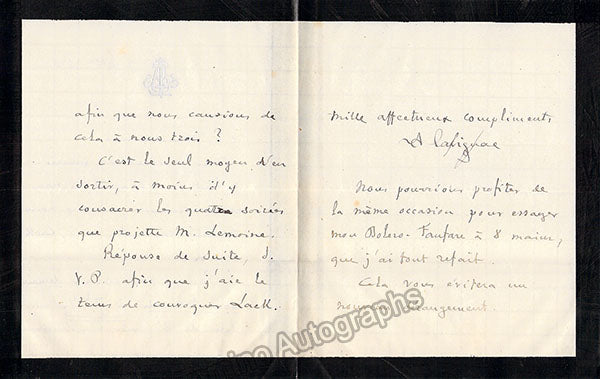 afin que nous causions de
cela à nous trois ?
C'est le seul moyen d'en
sortir, à moins d'y
consacrer les quatre soirées
que projette M. Lemoine.
Réponse de suite, S.
V. P. afin que j'aie le
tems de convoquer Lack.
Mille affectueux compliments
A Lavignac
Nous pourrions profiter de
la même occasion pour essayer
mon Bolero-Fanfare à 8 mains,
que j'ai tout refait.
Cela vous évitera un
nouveau dérangement.
Autographs